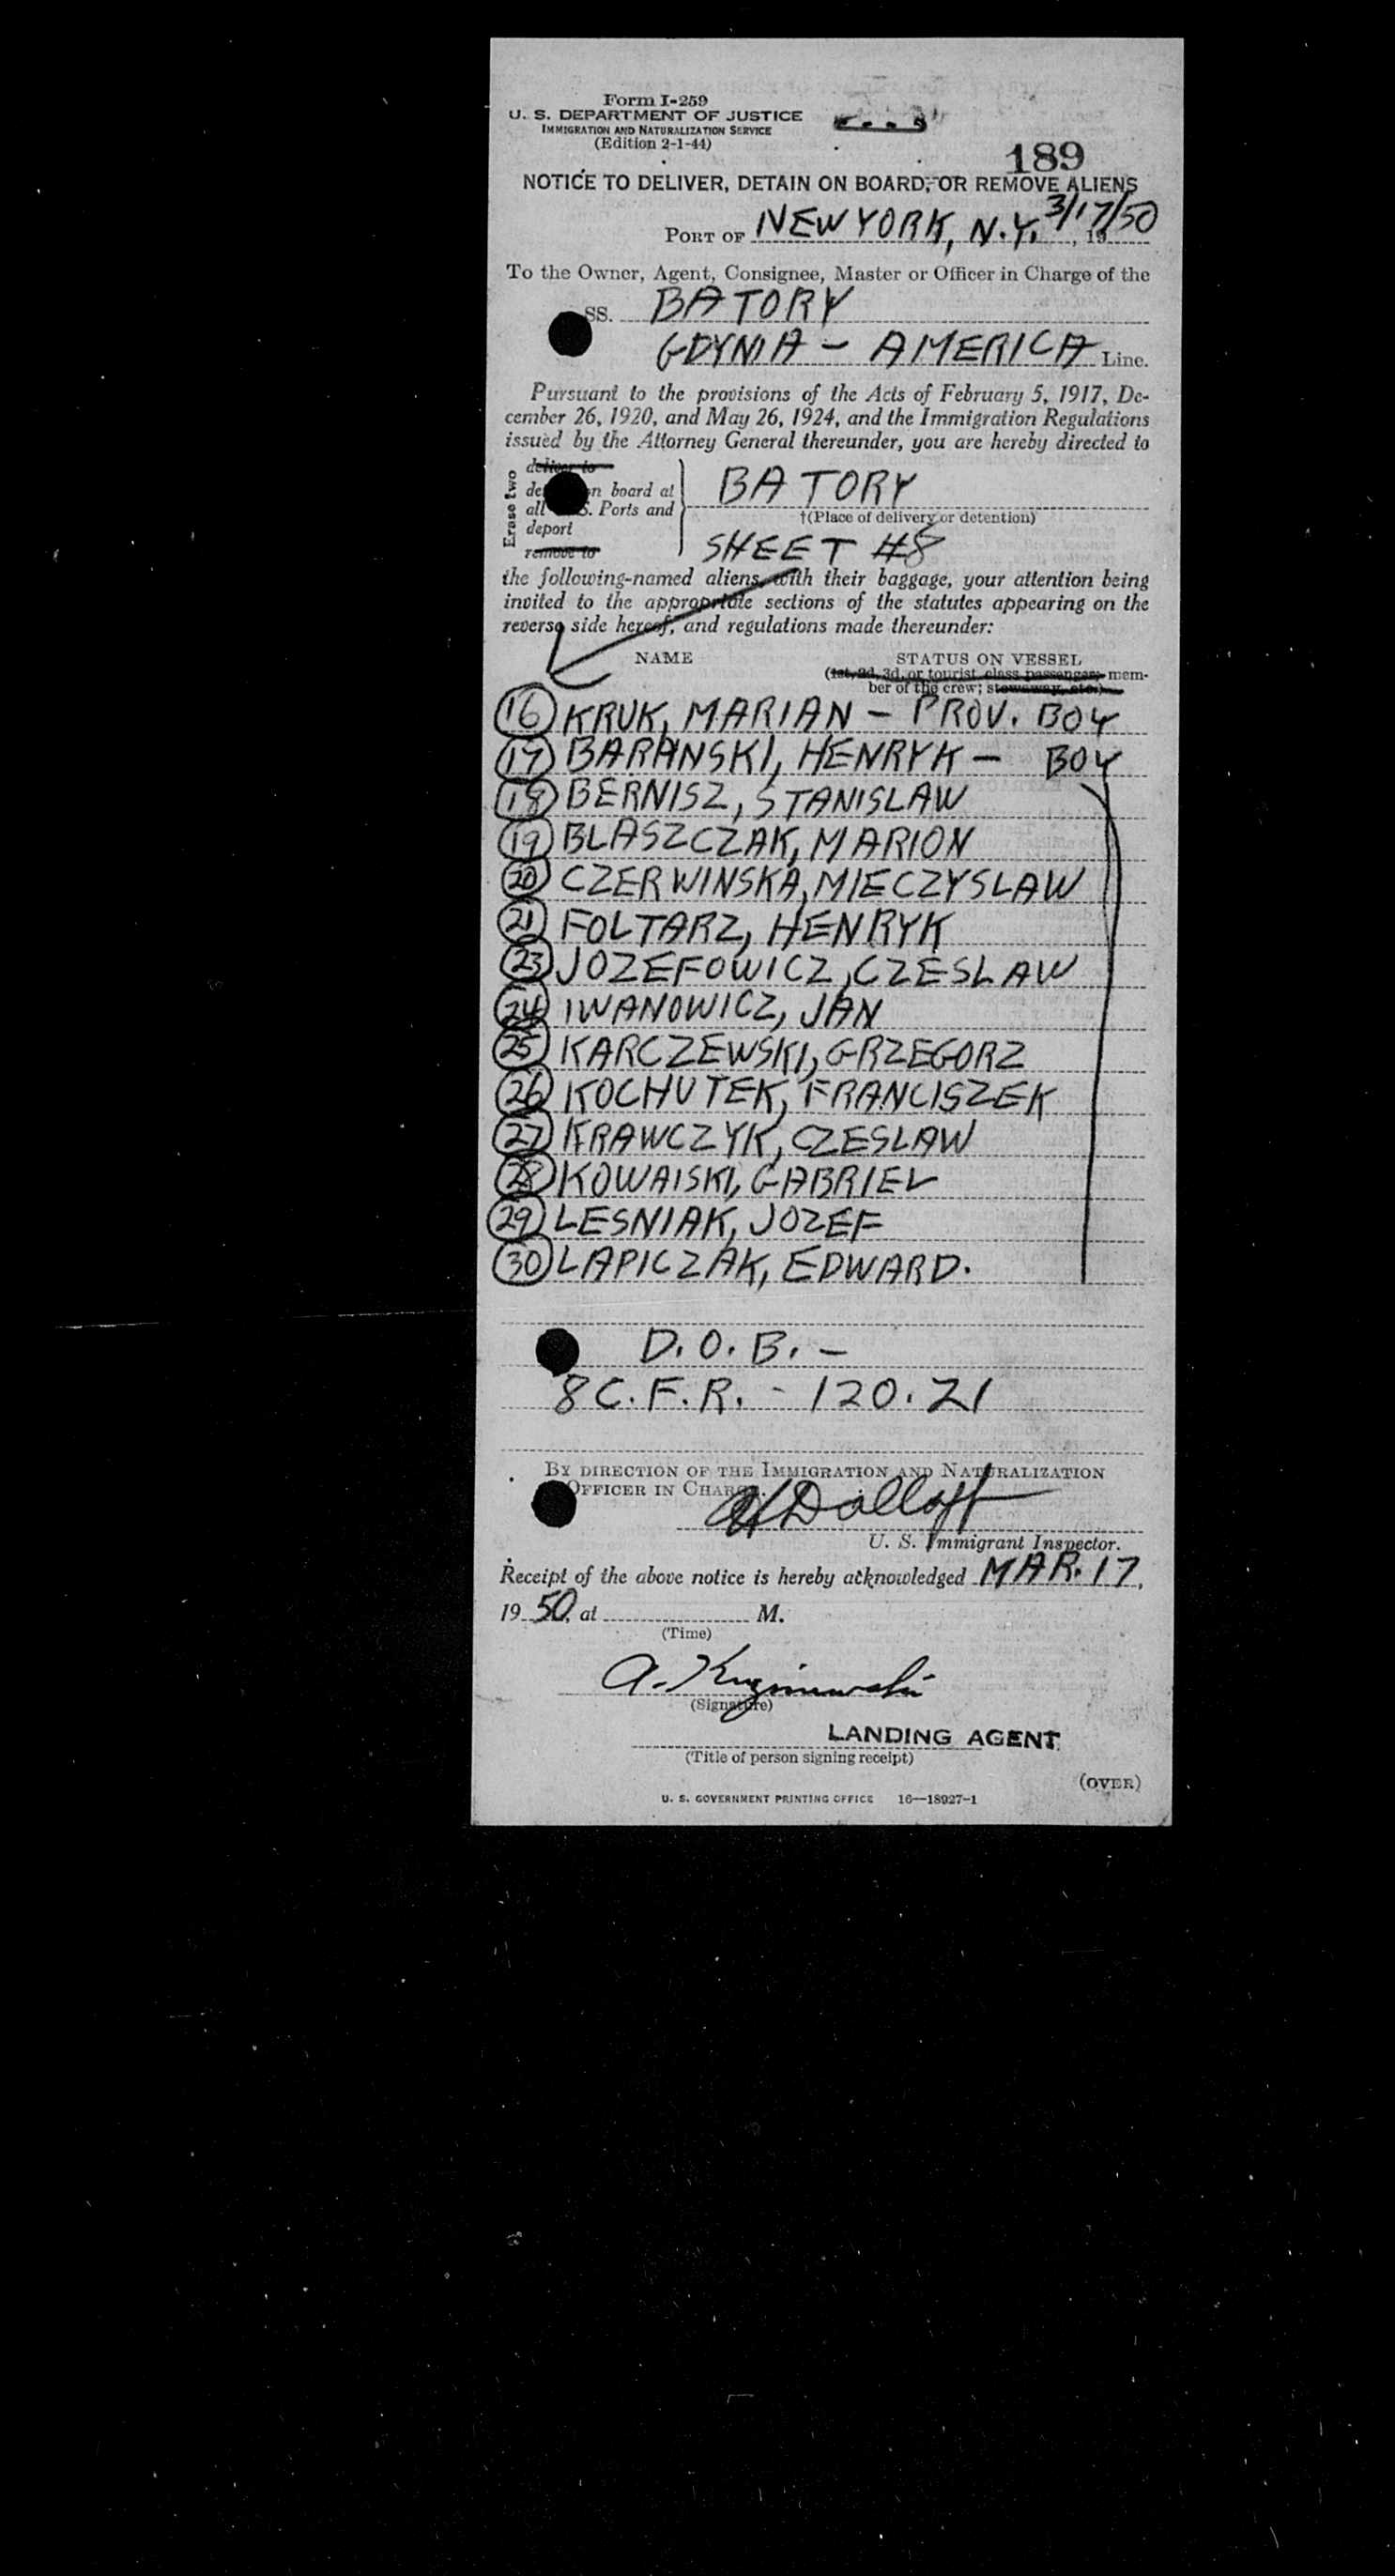 Form I-259
U. S. DEPARTMENT OF JUSTICE
IMMIGRATION AND NATURALIZATION SERVICE
(Edition 2-1-44)
189
NOTICE TO DELIVER, DETAIN ON BOARD, OR REMOVE ALIENS
PORT OF NEW YORK, N.Y. 3/17/50, 19
To the Owner, Agent, Consignee, Master or Officer in Charge of the
SS. BATORY
GDYNIA - AMERICA Line.
Pursuant to the provisions of the Acts of February 5, 1917, De-
cember 26, 1920, and May 26, 1924, and the Immigration Regulations
issued by the Attorney General thereunder, you are hereby directed to
Erase two
deliver to
de n board at
all S. Ports and
deport
remove to
BATORY
†(Place of delivery or detention)
SHEET #8
the following-named aliens, with their baggage, your attention being
invited to the appropriate sections of the statutes appearing on the
reverse side hereof, and regulations made thereunder:
NAME STATUS ON VESSEL
(1st, 2d, 3d, or tourist class passenger; mem-
ber of the crew; stowaway, etc.)
16 KRUK, MARIAN - PROV. BOY
17 BARANSKI, HENRYK - BOY
18 BERNISZ, STANISLAW
19 BLASZCZAK, MARION
20 CZERWINSKA, MIECZYSLAW
21 FOLTARZ, HENRYK
23 JOZEFOWICZ, CZESLAW
24 IWANOWICZ, JAN
25 KARCZEWSKI, GRZEGORZ
26 KOCHUTEK, FRANCISZEK
27 KRAWCZYK, CZESLAW
28 KOWAISKI, GABRIEL
29 LESNIAK, JOZEF
30 LAPICZAK, EDWARD.
D.O.B. -
8 C.F.R. - 120.21
BY DIRECTION OF THE IMMIGRATION AND NATURALIZATION
OFFICER IN CHARGE.
U. S. Immigrant Inspector.
Receipt of the above notice is hereby acknowledged MAR. 17,
19 50, at M.
(Time)
A.
(Signature)
LANDING AGENT
(Title of person signing receipt)
(OVER)
U. S. GOVERNMENT PRINTING OFFICE 16—18927-1